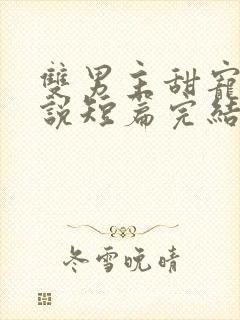 雙男主甜寵
說短篇完結
冬雪晚晴